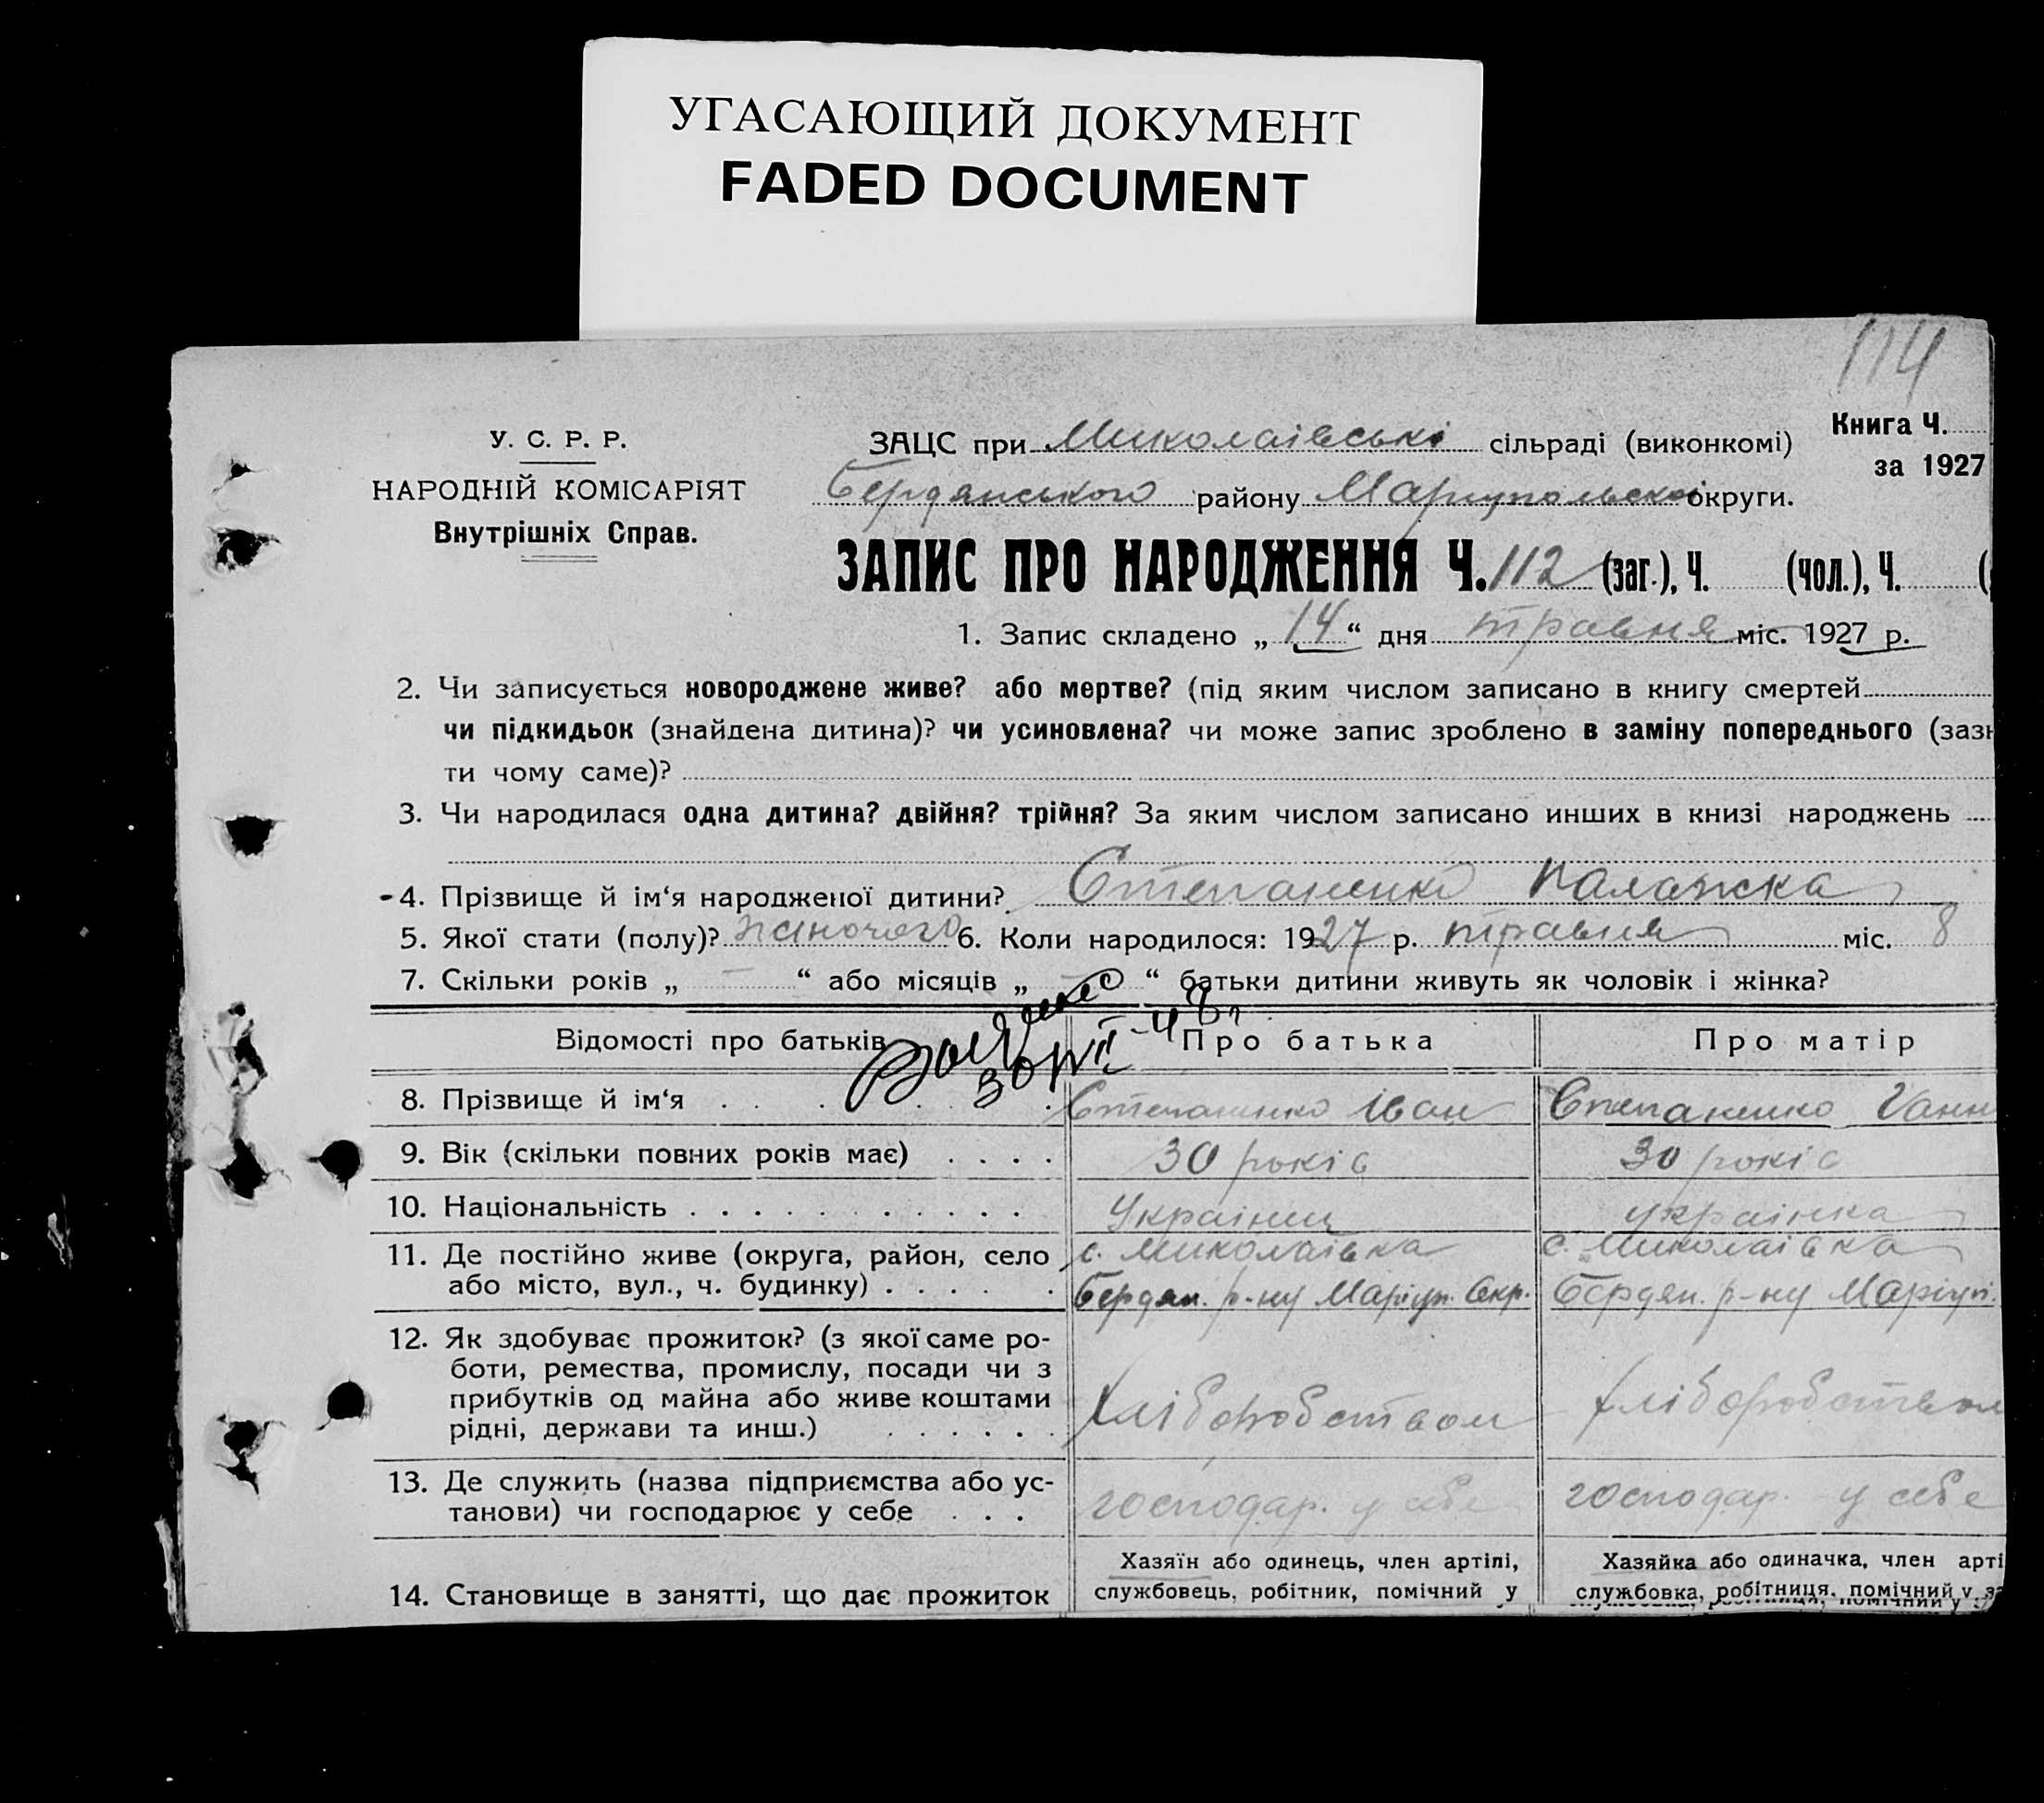 УГАСАЮЩИЙ ДОКУМЕНТ
FADED DOCUMENT
114
У. С. Р. Р.
НАРОДНІЙ КОМІСАРІЯТ
Внутрішніх Справ.
ЗАЦС при Миколаівські сільраді (виконкомі)
Книга Ч.
за 1927
Бердянського району Маріупольскої округи.
ЗАПИС ПРО НАРОДЖЕННЯ Ч. 112 (заг.), Ч. (чол.), Ч. (
1. Запис складено „ 14 “ дня травня міс. 1927 р.
2. Чи записується новороджене живе? або мертве? (під яким числом записано в книгу смертей
чи підкидьок (знайдена дитина)? чи усиновлена? чи може запис зроблено в заміну попереднього (зазн
ти чому саме)?
3. Чи народилася одна дитина? двійня? трійня? За яким числом записано инших в книзі народжень
4. Прізвище й ім‘я народженої дитини? Степаненко Палажка
5. Якої стати (полу)? жіночого 6. Коли народилося: 1927 р. травня міс. 8
7. Скільки років „ “ або місяців „ “ батьки дитини живуть як чоловік і жінка?
Відомості про батьків Про батька Про матір
8. Прізвище й ім‘я . . . . . . Степаненко Іван Степаненко Ганн
9. Вік (скільки повних років має) . . . . 30 років 30 років
10. Національність . . . . . . . . . . . Украінец украінка
11. Де постійно живе (округа, район, село с. Миколаівка с. Миколаівка
або місто, вул., ч. будинку) . . . . . Бердян. р-ну Маріуп. Окр. Бердян. р-ну Маріуп.
12. Як здобуває прожиток? (з якої саме ро-
боти, ремества, промислу, посади чи з
прибутків од майна або живе коштами Хліборобством хліборобством
рідні, держави та инш.) . . . . . .
13. Де служить (назва підприємства або ус-
танови) чи господарює у себе . . . господар. у себе господар. у себе
Хазяїн або одинець, член артілі, Хазяйка або одиначка, член арті
14. Становище в занятті, що дає прожиток службовець, робітник, помічний у службовка, робітниця, помічний у за